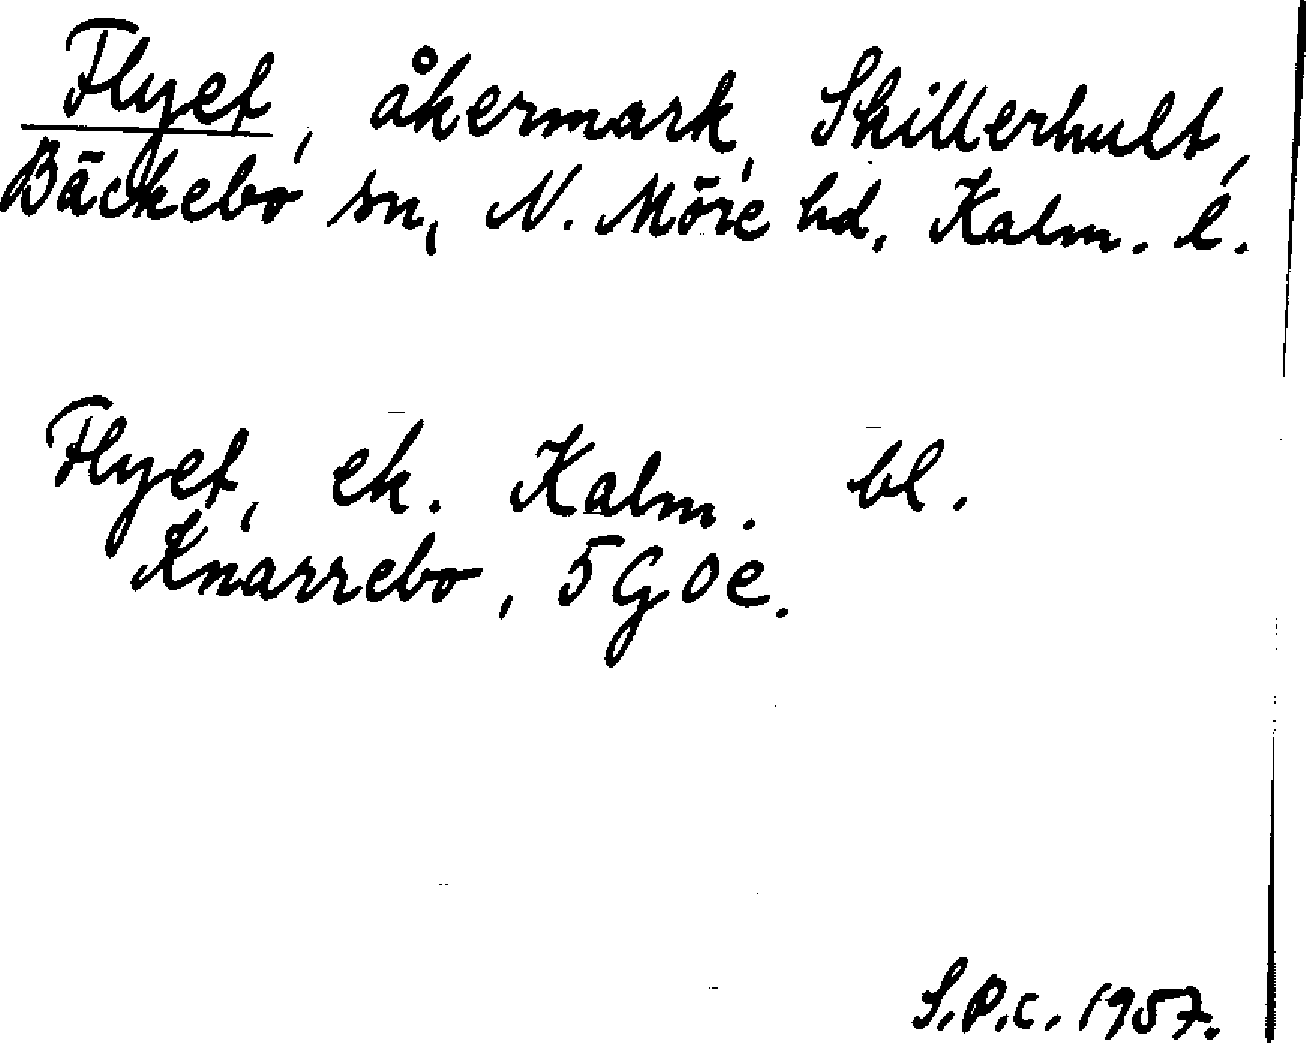 Flyet, åkermark, Skillerhult,
Bäckebo sn, N. Möre hd, Kalm. l.
Flyet, ek. Kalm. bl.
Knarrebo, 5G0e.
S.P.c. 1957.